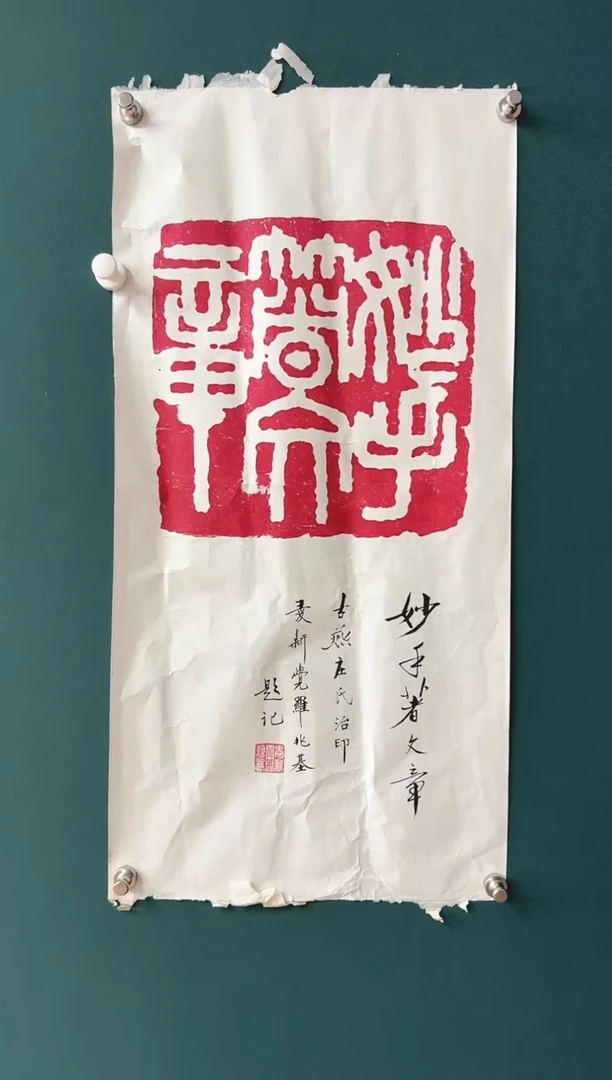 妙手著文章
妙手著文章
古燕庄氏治印
爱新觉羅兆基
题记